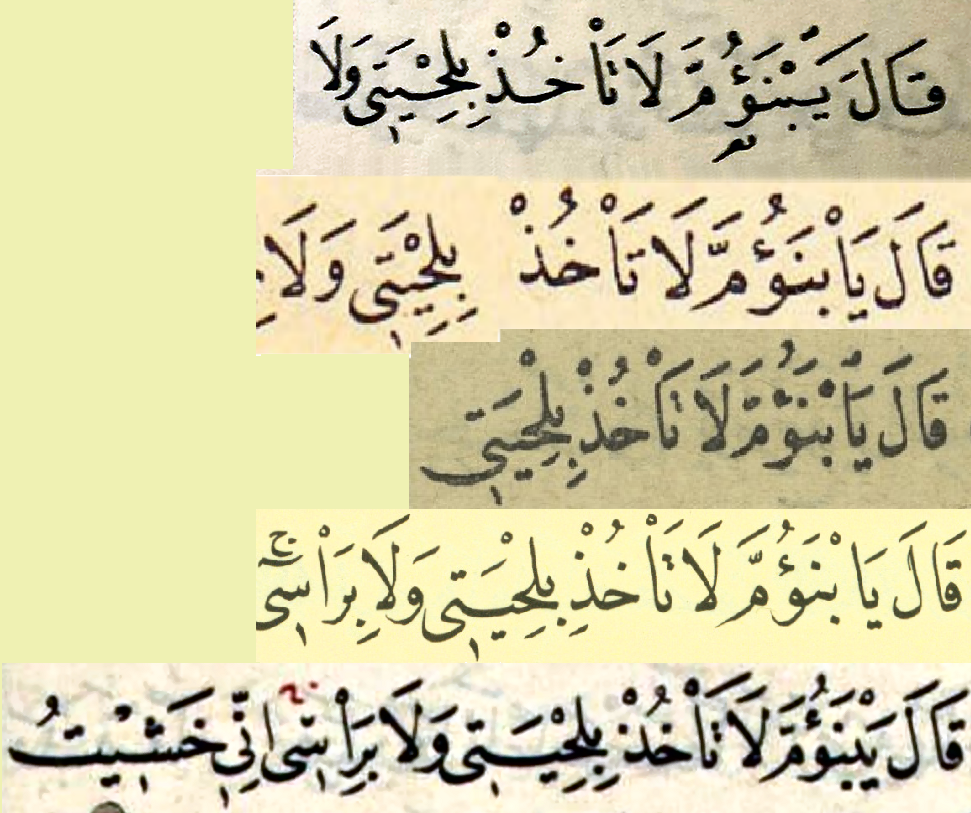 قَالَ يَبْنَؤُمَّ لَا تَأْخُذْ بِلِحْيَتِي وَلَا
قَالَ يَابْنَؤُمَّ لَا تَأْخُذْ بِلِحْيَتِي وَلَا
قَالَ يَابْنَؤُمَّ لَا تَأْخُذْ بِلِحْيَتِي
قَالَ يَابْنَؤُمَّ لَا تَأْخُذْ بِلِحْيَتِي وَلَا بِرَأْسِي ج
قَالَ يَبْنَؤُمَّ لَا تَأْخُذْ بِلِحْيَتِي وَلَا بِرَأْسِي اِنِّي خَشِيتُ